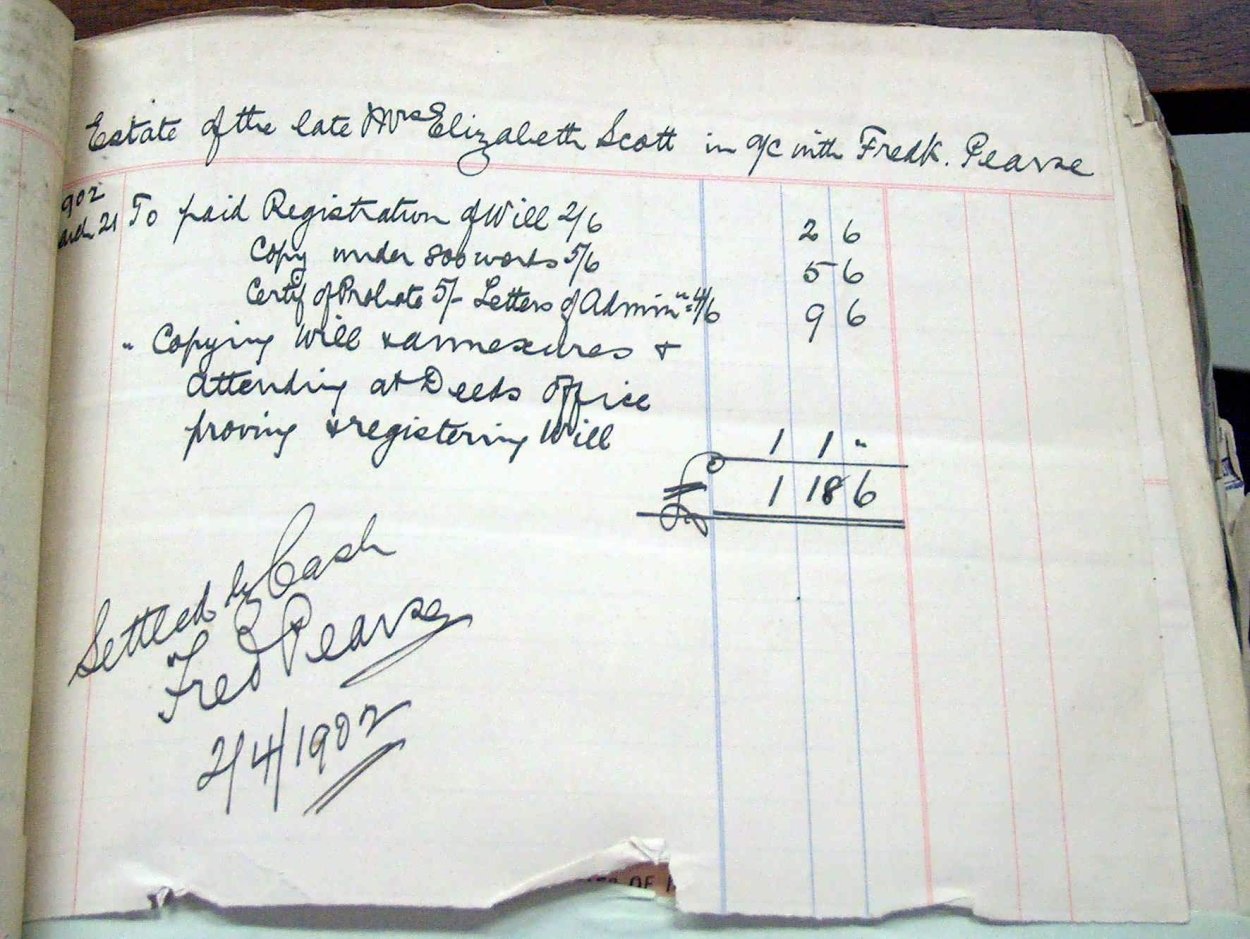 Estate of the late Mrs Elizabeth Scott in a/c with Fredk. Pearse
902
arch 21 To paid Registration of Will 2/6 2 6
Copy under 800 words 5/6 5 6
Certif of Probate 5/- Letters of Admin:n 4/6 9 6
" Copying Will & annexures &
attending at Deeds Office
proving & registering Will 1 1 "
£ 1 18 6
Settled by Cash
Fred Pearse
2/4/1902
OF